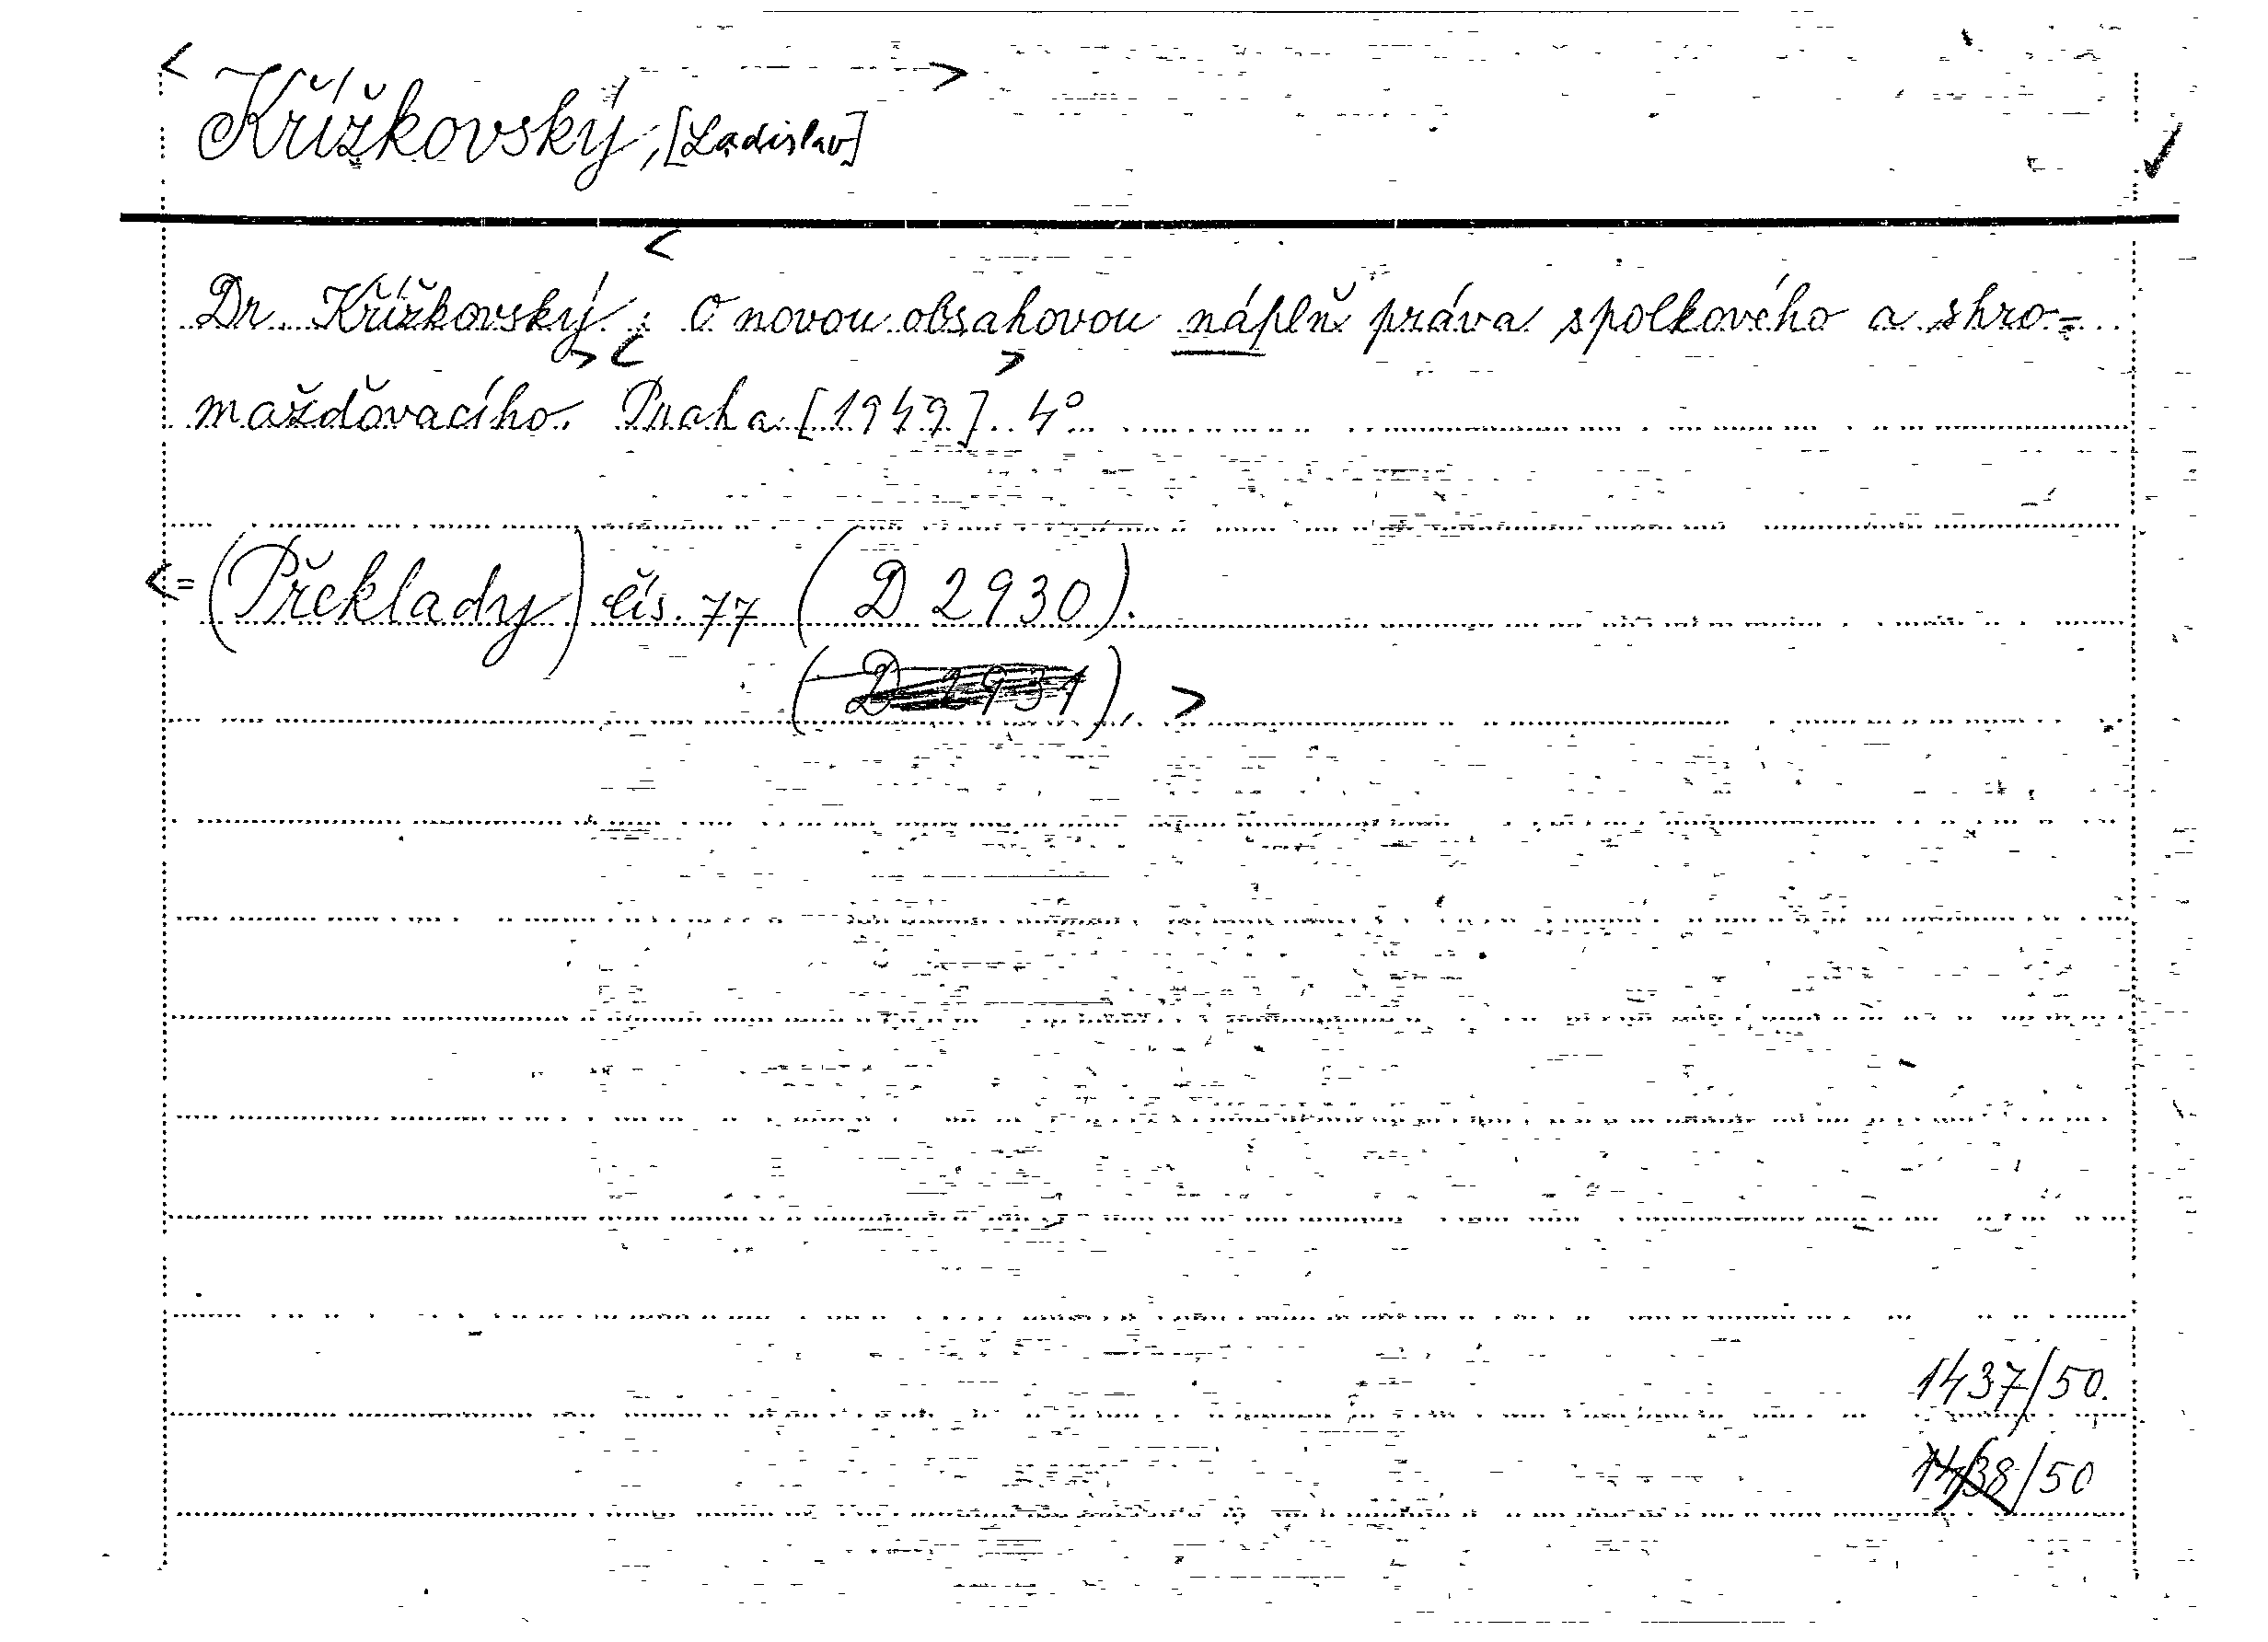 < Křížkovský, [Ladislav] >
<
Dr. Křížkovský : O novou obsahovou náplň práva spolkového a shro-
mažďovacího. Praha [1949]. 4°
<= (Překlady) čís. 77 (D 2930).
(D 2931). >
1437/50.
1438/50